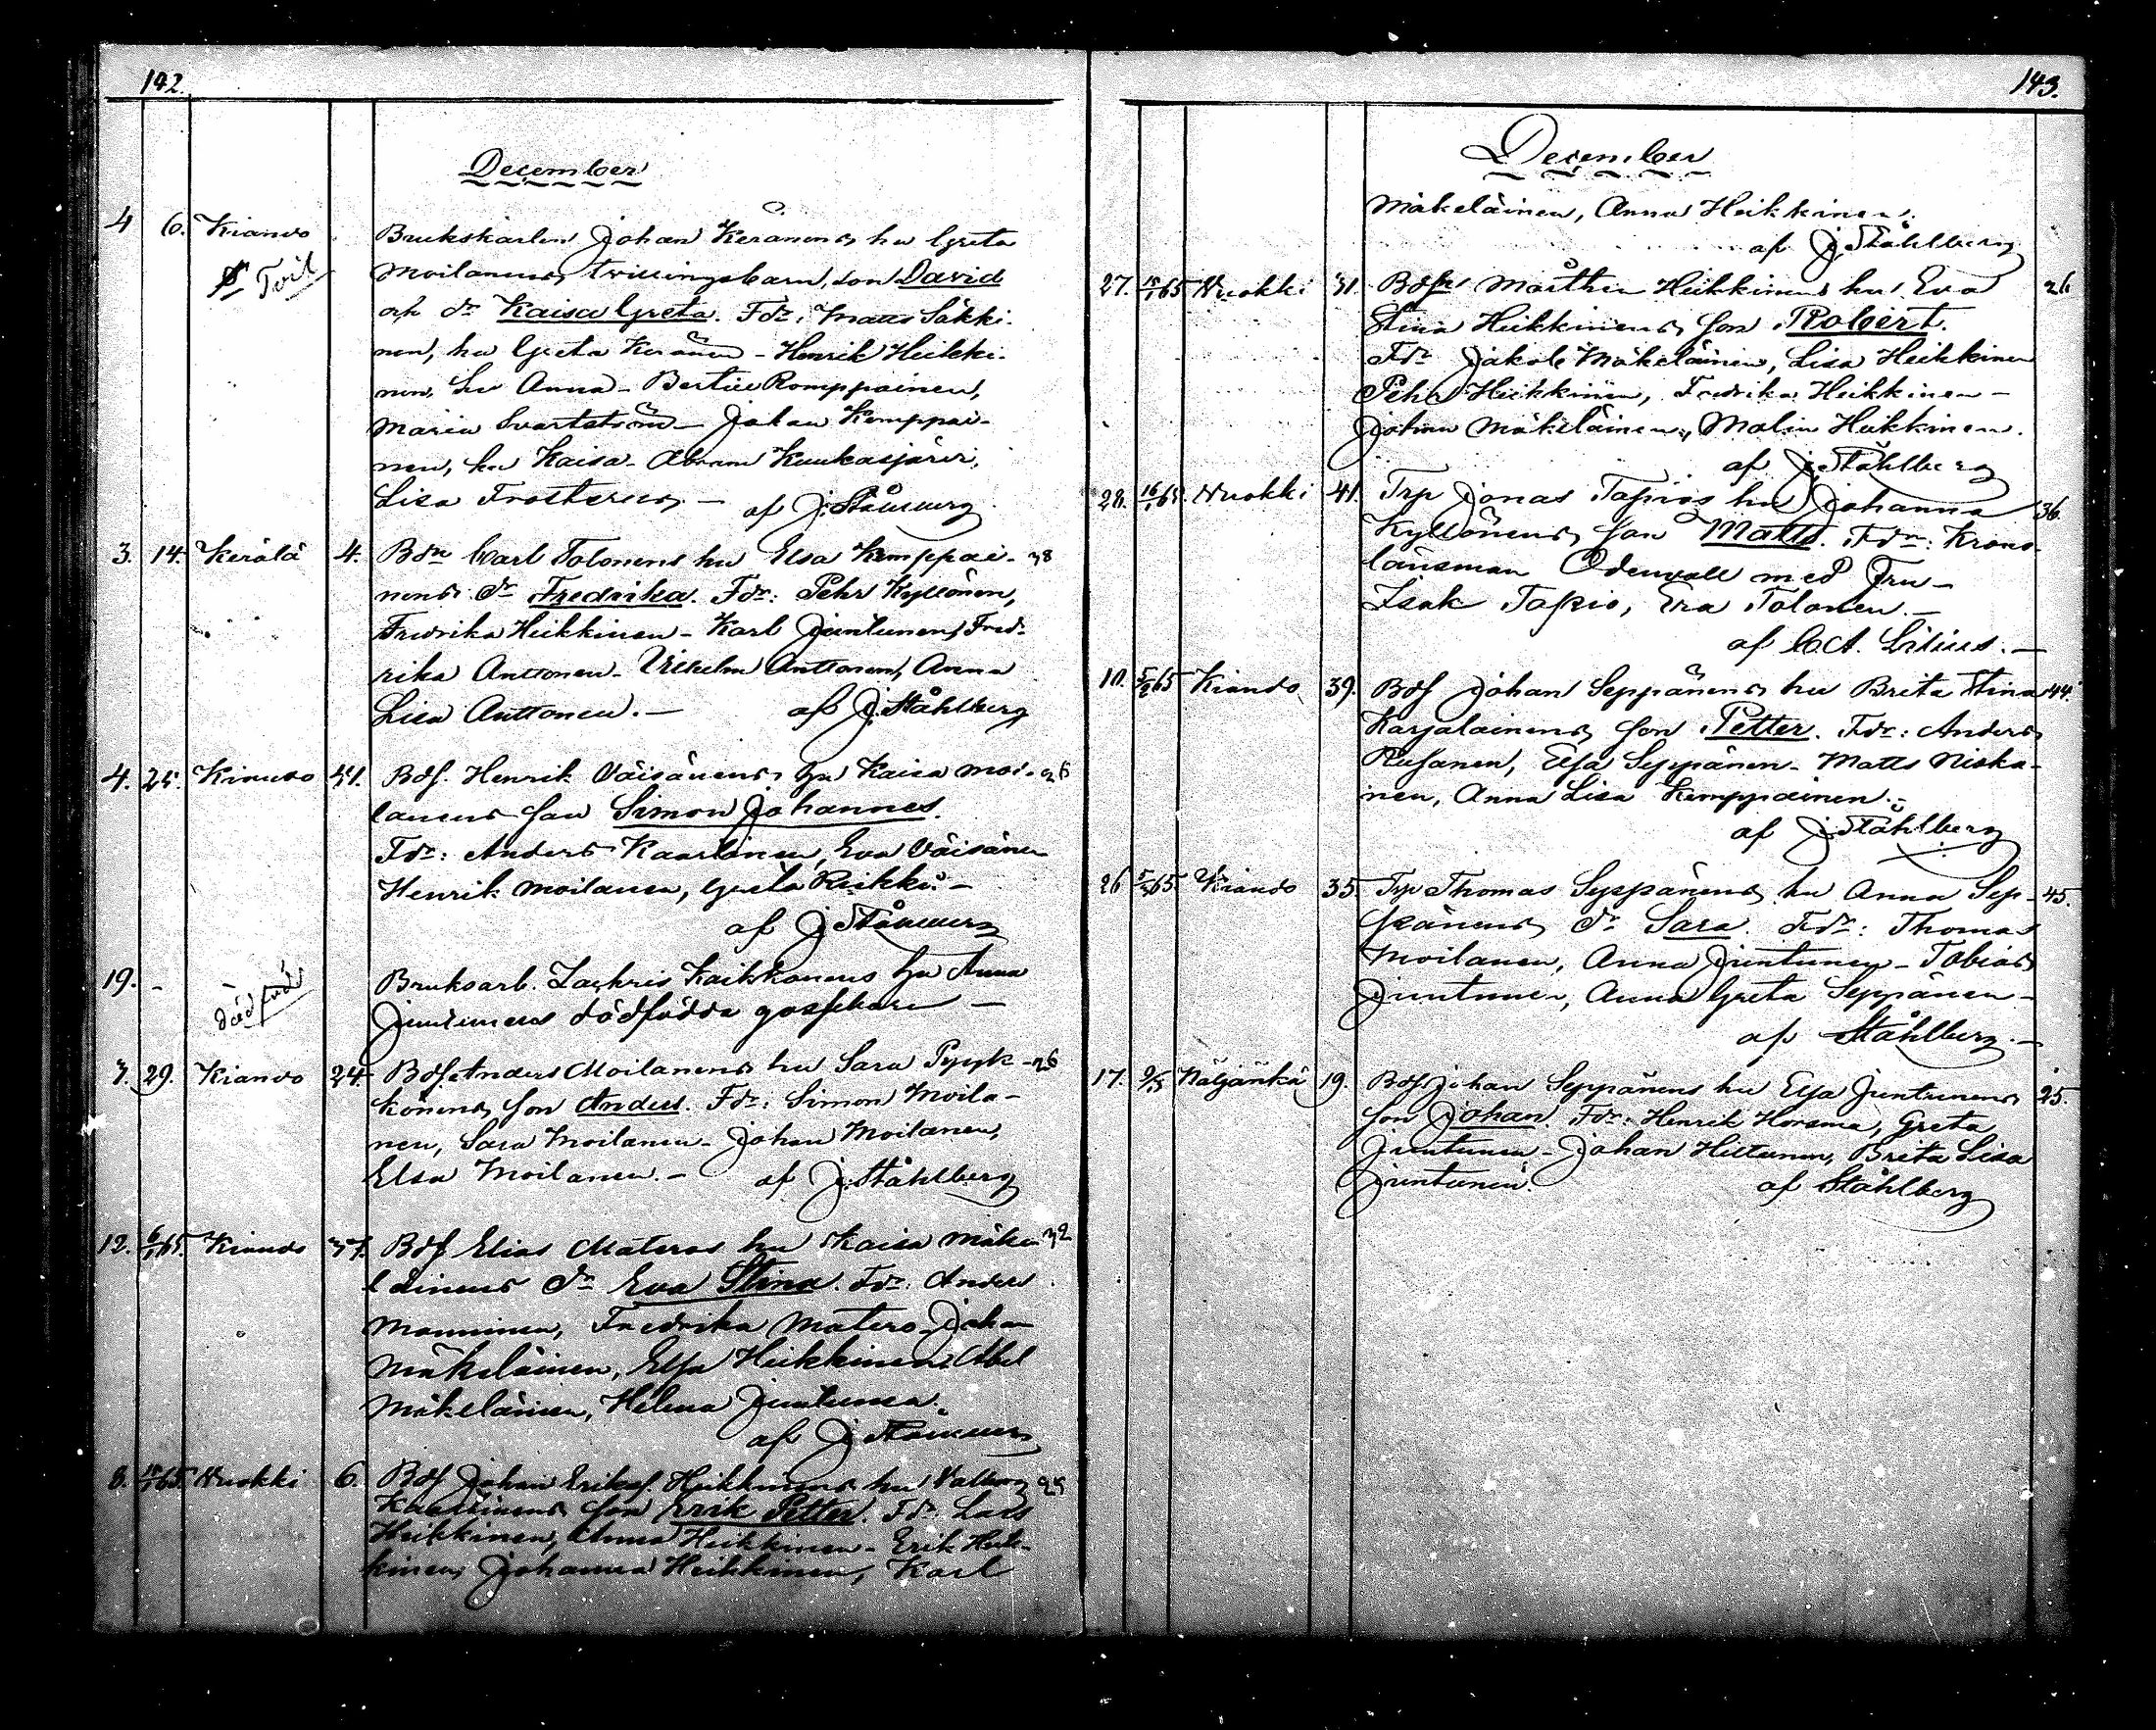 142.
December
4 6. Kiando Brukskarlen Johan Keränens hu Greta
Tvil. Moilanens tvillingsbarn, son David
och dr Kaisa Greta. Fdr: Matts Säkki-
nen, hu Greta Keränen - Henrik Heikki-
nen, hu Anna - Bertil Romppainen,
Maria Svartström - Johan Kemppai-
nen, hu Kaisa - Abram Kuukasjärvi,
Lisa Frosterus - af J. Ståhlberg
3. 14. Kerälä 4. Bdn Carl Tolonens hu Elsa Kemppai- 38
nens dr Fredrika. Fdr: Pehr Kyllönen,
Fredrika Heikkinen - Karl Juntunen, Fred-
rika Anttonen - Vilhelm Anttonen, Anna
Lisa Anttonen. - af J. Ståhlberg
4. 25. Kiando 51. Bdf. Henrik Väisänens hu Kaisa Moi-
lanens son Simon Johannes.
Fdr: Anders Kaartinen, Eva Väisänen
Henrik Moilanen, Greta Riikki. -
af J. Ståhlberg
19. - dödfödd Bruksarb. Zachris Kaikkonens hu Anna
Juntunens dödfödda gossebarn -
7. 29. Kiando 24. Bdf Anders Moilanens hu Sara Pyyk- 26
könens son Anders. Fdr: Simon Moila-
nen, Sara Moilanen - Johan Moilanen,
Elsa Moilanen. - af J. Ståhlberg
12. 6/1 65. Kiando 37. Bdf Elias Materos hu Kaisa Mäke- 32
läinens dr Eva Stina. Fdr: Anders
Manninen, Fredrika Matero - Johan
Mäkeläinen, Elsa Heikkinen - Abel
Mäkeläinen, Helena Juntunen.
af J. Ståhlberg
8. 15/1 65. Nuokki 6. Bdf Johan Eriksf. Heikkinens hu Valborg 25
Kaartinens son Erik Petter. Fdr: Lars
Heikkinen, Anna Heikkinen - Erik Heik-
kinen, Johanna Heikkinen, Karl
143.
December
Mäkeläinen, Anna Heikkinen.
af J. Ståhlberg
27. 15/1 65 Nuokki 31. Bdf Mårthen Heikkinens hu Eva 26
Stina Heikkinens son Robert.
Fdr Jakob Mäkeläinen, Lisa Heikkinen
Pehr Heikkinen, Fredrika Heikkinen -
Johan Mäkeläinen, Malin Heikkinen.
af J. Ståhlberg
28. 16/1 65. Nuokki 41. Trp Jonas Tapios hu Johanna 36
Kyllönens son Matts. Fdr: Krono-
länsman Odenvall med Fru -
Isak Tapio, Eva Tolonen. -
af C.A. Lilius. -
10. 5/2 65 Kiando 39. Bdf Johan Seppänens hu Brita Stina 44.
Karjalainens son Petter. Fdr: Anders
Rusanen, Elsa Seppänen - Matts Niska-
nen, Anna Lisa Kemppainen. -
af J. Ståhlberg
26 65. Kiando 35. Thomas Seppänens hu Anna Sep- 45.
pänens dr Sara. Fdr: Thomas
Moilanen, Anna Juntunen - Tobias
Juntunen, Anna Greta Seppänen -
af Ståhlberg. -
17. 9/3 Näljänkä 19. Bdf Johan Seppänens hu Elsa Juntunens 25.
son Johan. Fdr: Henrik Horsma, Greta
Juntunen - Johan Hiltunen, Brita Lisa
Juntunen. af Ståhlberg